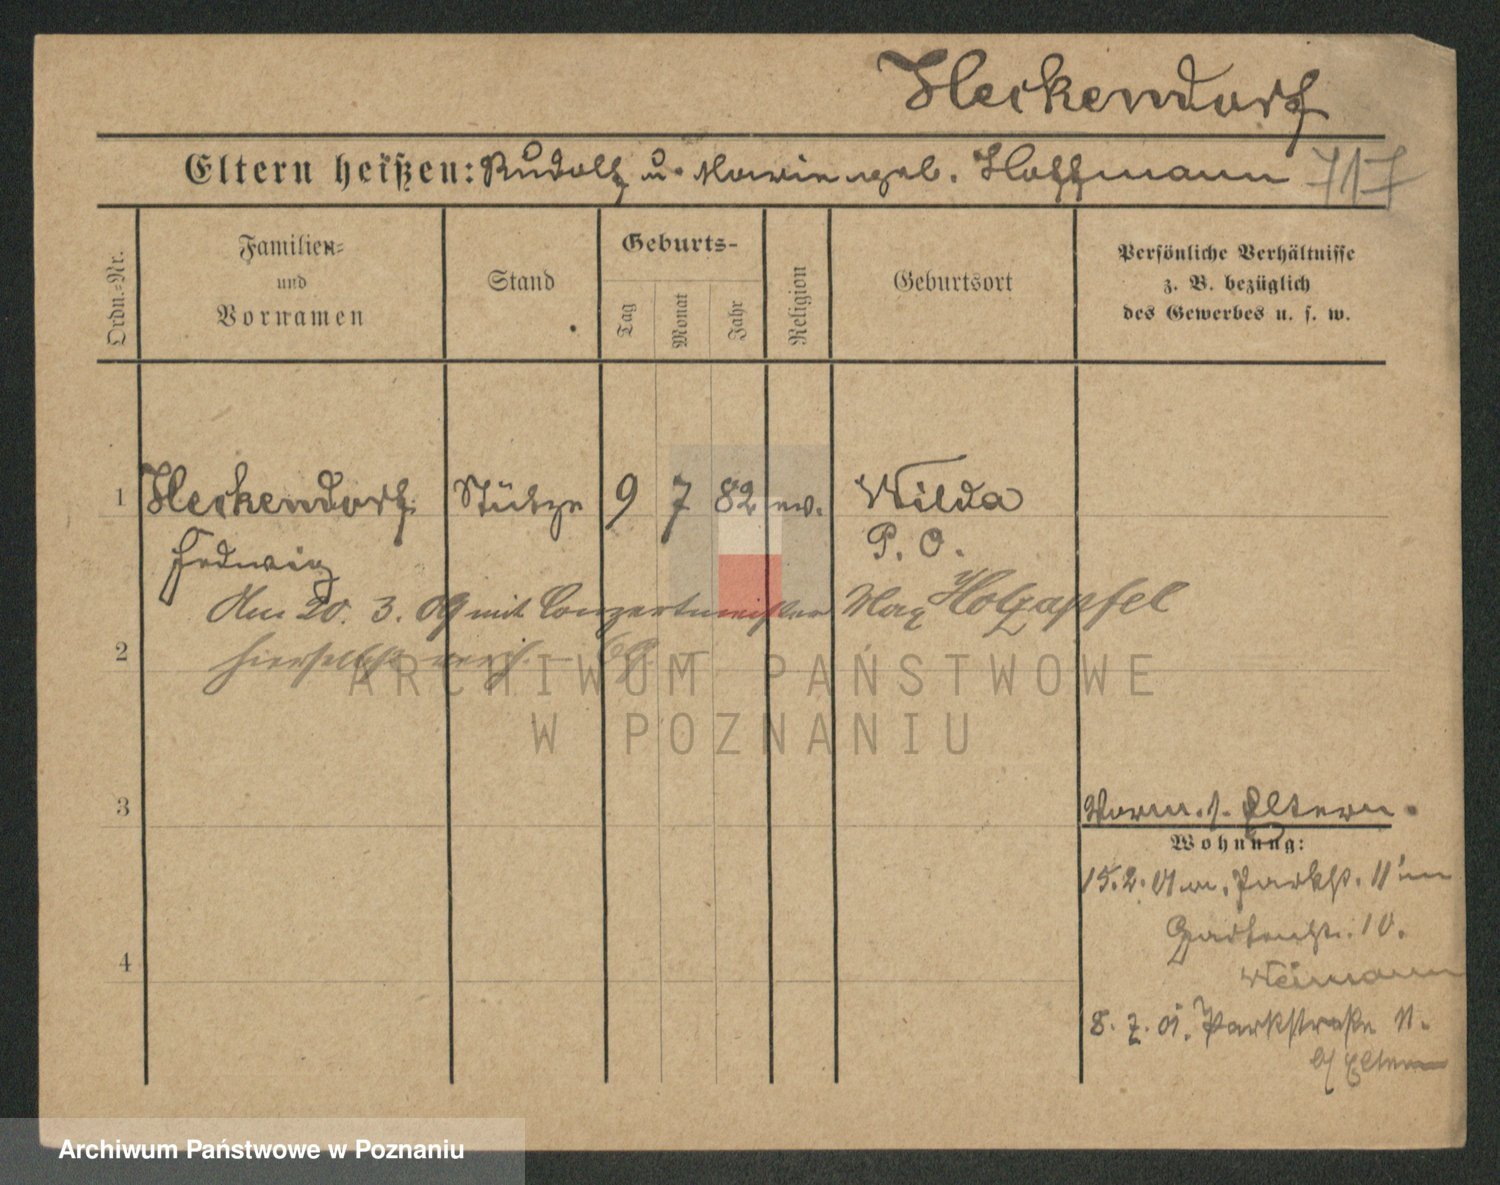 Heckendorf
Eltern heißen: Rudolf u. Marie geb. Hoffmann 717
Ordn.-Nr.
Familien-
und
Vornamen
Stand
Geburts-
Tag
Monat
Jahr
Religion
Geburtsort
Persönliche Verhältnisse
z. B. bezüglich
des Gewerbes u. s. w.
1 Heckendorf Stütze 9 7 82 ev. Wilda
Hedwig P. O.
Am 20. 3. 09 mit Conzertmeister Max Holzapfel
2 hierselbst verh.
ARCHIWUM PAŃSTWOWE
W POZNANIU
3 Vorm. s. Eltern.
Wohnung:
15.2.01 v. Parkst. 11 in
Gartenstr. 10.
4 Weimann
8. 7. 01. Parkstraße 11.
b/ Eltern
Archiwum Państwowe w Poznaniu